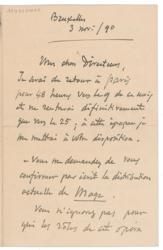 Bruxelles
3 nov. / 90
Mon cher Directeur,
Je serai de retour à Paris
pour 48 heures vers le 9 de ce mois
et ne rentrerai définitivement
que vers le 25 ; à cette époque je
me mettrai à votre disposition.
- Vous me demandez de vous
confirmer par écrit la distribution
actuelle du Mage.
Vous n'ignorez pas pour
qui les rôles de cet opéra